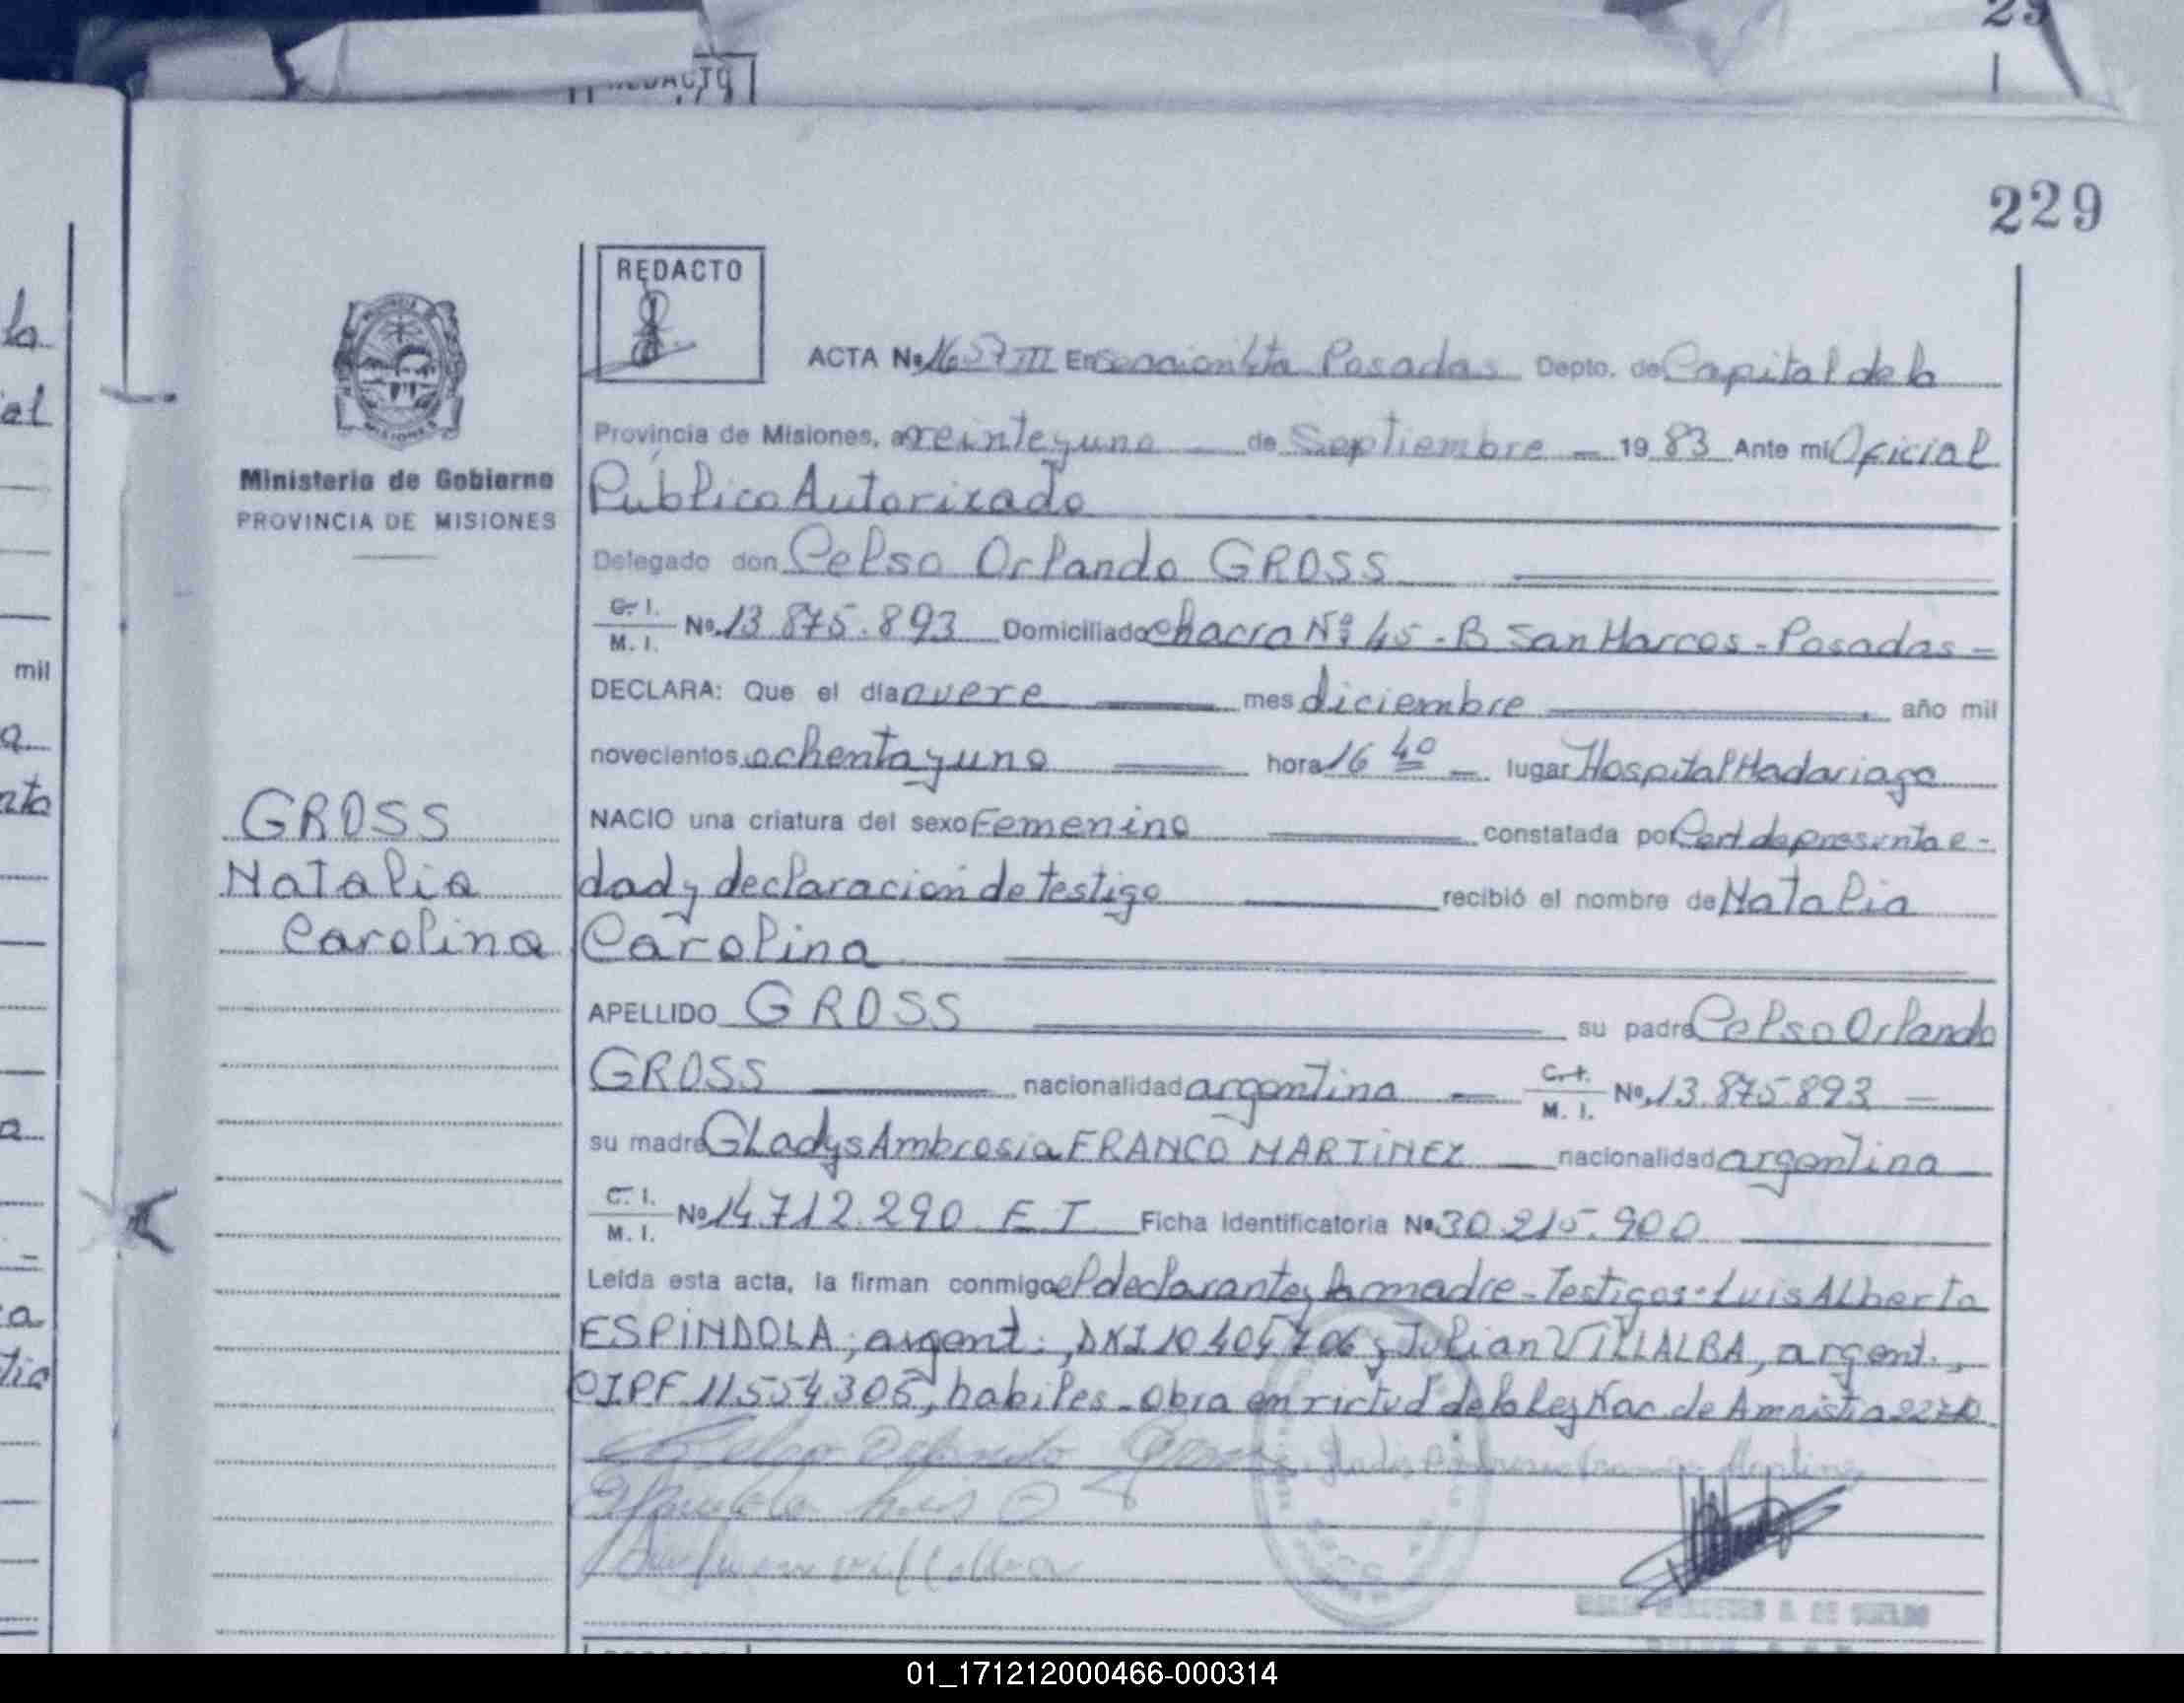 229
REDACTO
ACTA No. 1657 III En Seccion 6ta Posadas Depto. de Capital de la
Provincia de Misiones, a veinteyuno — de Septiembre — 19 83 Ante mi Oficial
Ministerio de Gobierno
PROVINCIA DE MISIONES
Público Autorizado
Delegado don Celso Orlando GROSS
C. I.
M. I.
No. 13.875.893 Domiciliado chacra Nº 45 - B San Marcos - Posadas -
DECLARA: Que el día nueve mes diciembre año mil
novecientos ochenta y uno hora 16 40 — lugar Hospital Madariaga
NACIO una criatura del sexo Femenino constatada por Cert. de presunta e-
dad y declaración de testigo recibió el nombre de Natalia
Carolina
GROSS
Natalia
Carolina
APELLIDO GROSS su padre Celso Orlando
GROSS nacionalidad argentina — C. I.
M. I.
No. 13.875.893 —
su madre GLadys Ambrosia FRANCO MARTINEZ — nacionalidad argentina
C. I.
M. I.
No 14.712.290 E T Ficha Identificatoria No. 30.215.900
Leída esta acta, la firman conmigo el declarante y la madre - Testigos: Luis Alberto
ESPINDOLA, argent., DNI 10.404.706 y Julian VILLALBA, argent.,
CIPF 11.554.305, habiles - Obra en virtud de la Ley Nac. de Amnistia
mil
01_171212000466-000314